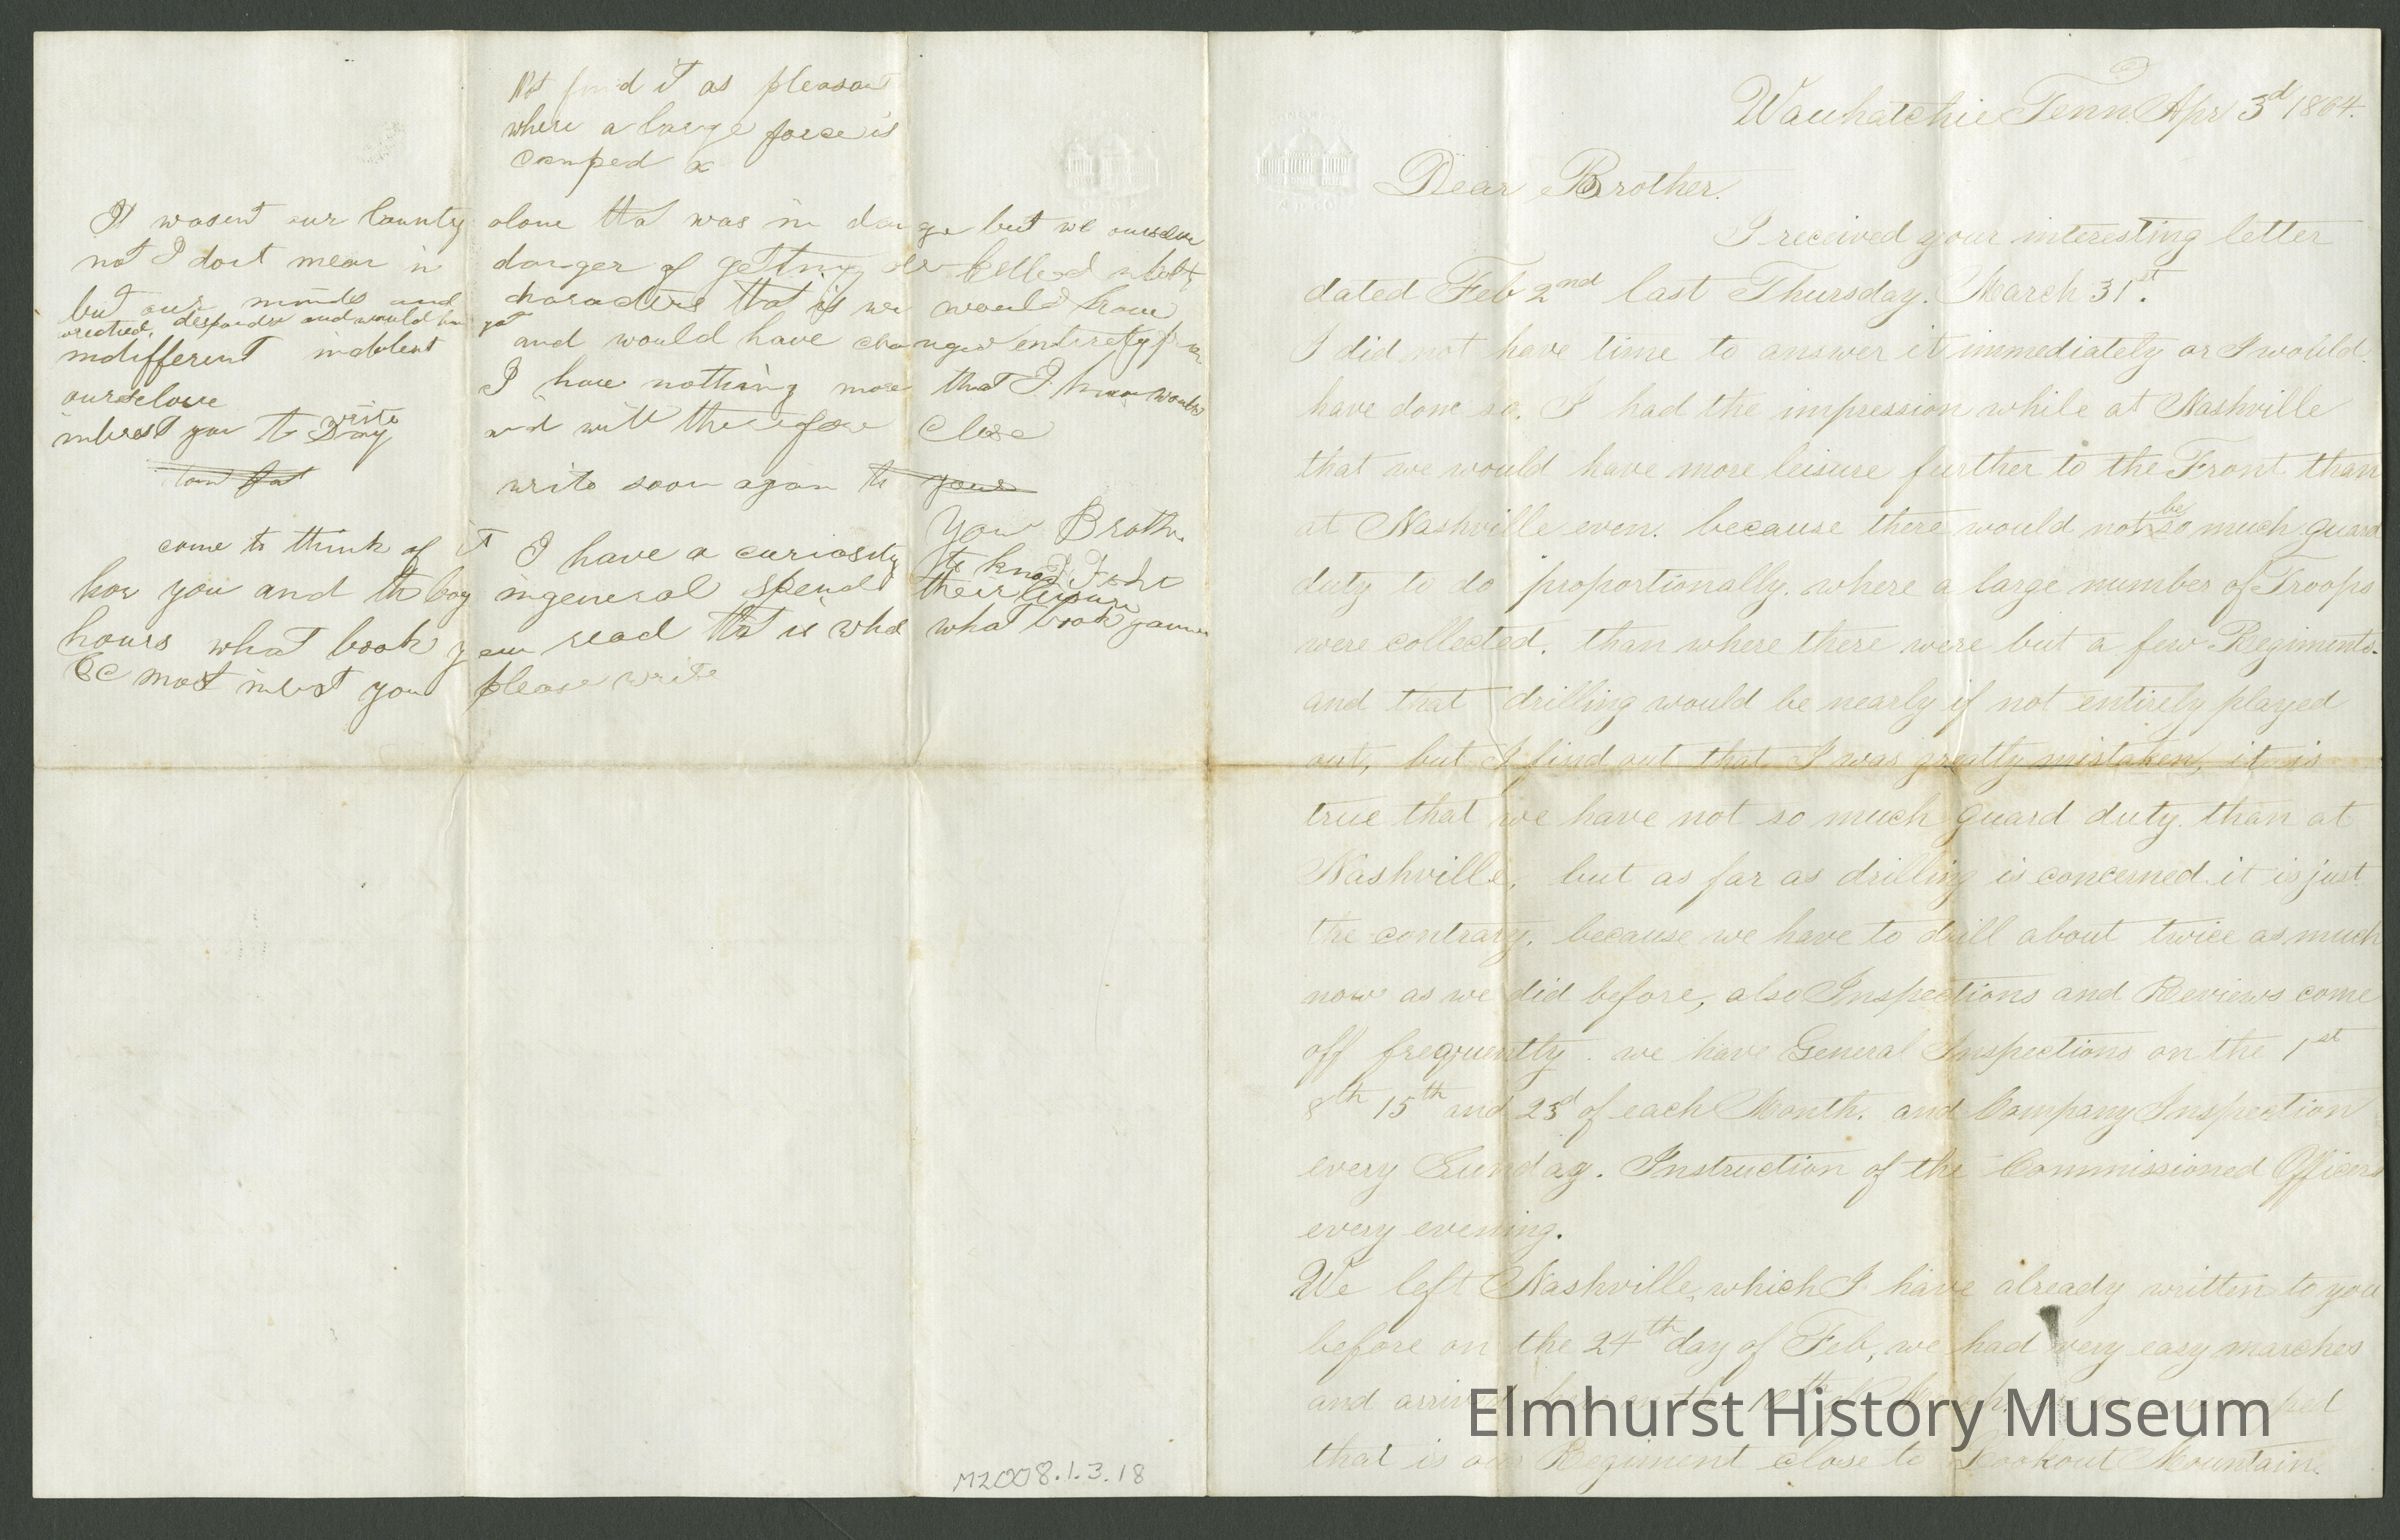 Not find it as pleasant
where a large force is
camped x
It wasent our County alone tha was in danger but we ourselve
not I dont mean in danger of getting
but our minds and characters that is we would have
and would have got
indifferent indolent and would have changed entirely from
ourselove I have nothing more that I know would
interest you to write and will therefore close
write soon again to your
Your Brother
come to think of it I have a curiosity to know
how you and the boy in general spend their leisure
hours what book you read that is what what book games
&c most interest you please write
M2008.1.3.18
Wauhatchie Tenn. Apr 3d 1864.
Dear Brother.
I received your interesting letter
dated Feb 2nd last Thursday. March 31st.
I did not have time to answer it immediately or I would
have done so. I had the impression while at Nashville
that we would have more leisure further to the Front than
at Nashville even. because there would not be so much guard
duty to do proportionally. where a large number of Troops
were collected. than where there were but a few Regiments.
and that drilling would be nearly if not entirely played
out, but I find out that I was greatly mistaken, it is
true that we have not so much guard duty. than at
Nashville, but as far as drilling is concerned it is just
the contrary. because we have to drill about twice as much
now as we did before, also Inspections and Reviews come
off frequently. we have General Inspections on the 1st
8th 15th and 23d of each Month. and Company Inspection
every Sunday. Instruction of the Commissioned Officers
every evening.
We left Nashville, which I have already written to you
before on the 24th day of Feb, we had very easy marches
and arrived
that is our Regiment close to Lookout Mountain.
Elmhurst History Museum